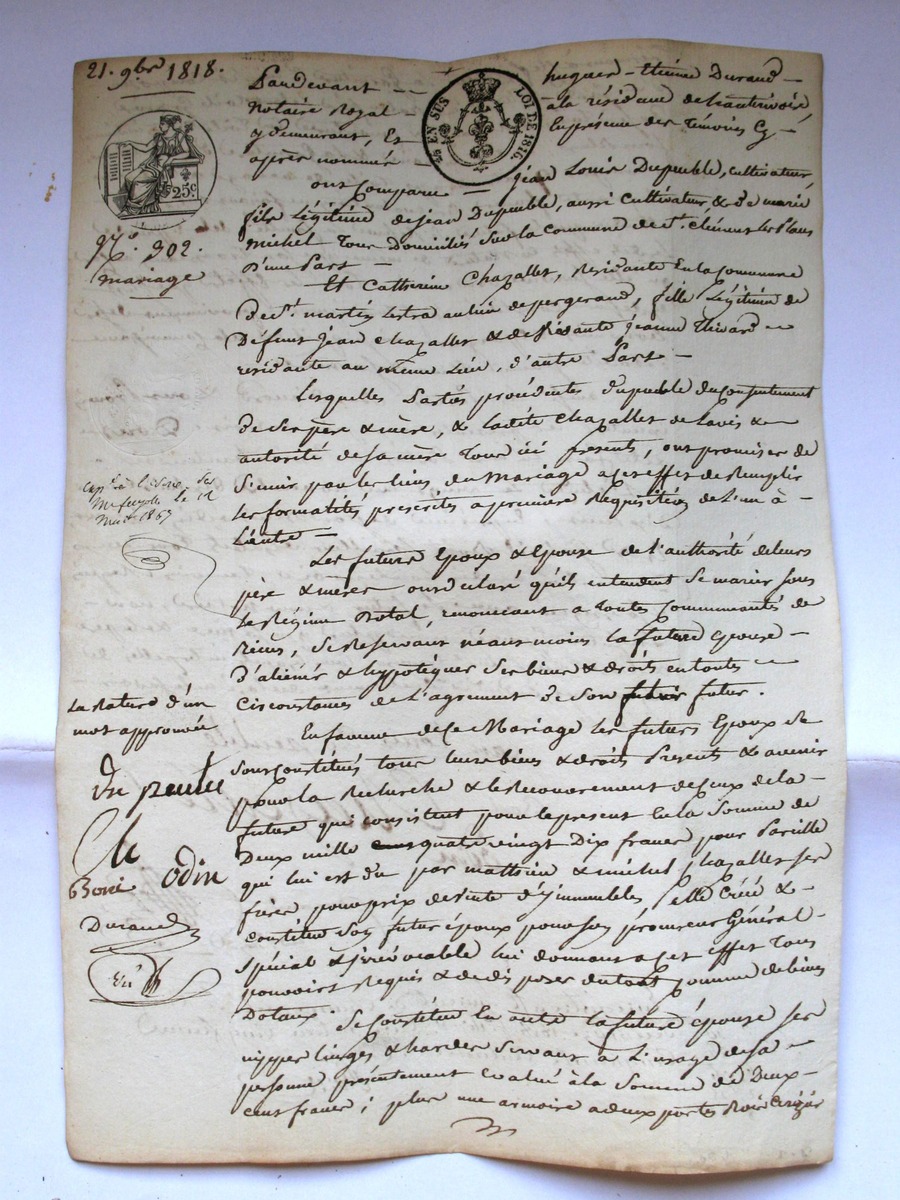 21. 9bre 1818.
Pardevant hugues-Etienne Durand
Notaire Royal à la résidence de hauterivoire
y demeurant, Et En présence des témoins Cy-
après nommés
EN SUS LOI DE 1816
25c
ont Comparu Jean Louis Dupeuble, cultivateur,
fils Légitime de jean Dupeuble, aussi Cultivateur, & de marie
michel Tous Domiciliés sur la Commune de St. Clément Les Places
D'une Part
No. 302.
mariage
Et Catherine Chazallet, Résidante En la Commune
De St. martin Lestra fille Légitime de
Défunt jean Chazallet & de vivante jeanne
residante au même Lieu, d'autre Part
Lesquelles Parties procédantes Dupeuble du consentement
De ses père & mère, & ladite Chazallet de l'avis &
autorité de sa mère Tous ici présents, ont promis de
S'unir par les liens du Mariage a cet effet de Remplir
Les formalités prescrites a première Réquisition de L'un à
L'autre
le 12
1867
Les futurs Epoux & Epouse de l'authorité de leurs
père & mères ont déclaré qu'ils entendent Se marier sous
Le Régime Dotal, renoncant a Toutes Communautés de
Biens, Se Reservant néanmoins la future Epouse
D'aliéner & hypotéquer Ses biens & droits en toutes
Circonstances de L'agrément de Son futur futur.
La Rature d'un
mot approuvée
En faveur de Ce Mariage les futurs Epoux Se
Sont Constitués tous leurs biens & droits Présents & avenir
pour la Recherche & le Recouvrement de Ceux de la
future qui consistent pour le present En la Somme de
Deux mille cent quatre vingt Dix francs pour Pareille
qui lui est Du par mathieu & michel Chazallet ses
frères pour prix de vente d'immeubles, Elle Créé &
Constitue Son futur époux pour son procureur Général
Spécial & irrévocable lui donnant a cet effet Tous
pouvoirs Requis & de disposer du tout Comme de biens
Dotaux.
Odin
Boni
Durand
Se Constitue En outre la future épouse ses
nippes linges & hardes Servant à L'usage de sa
personne présentement évalué à la Somme de Deux
Cent francs; plus une armoire a deux portes Bois Cerizier